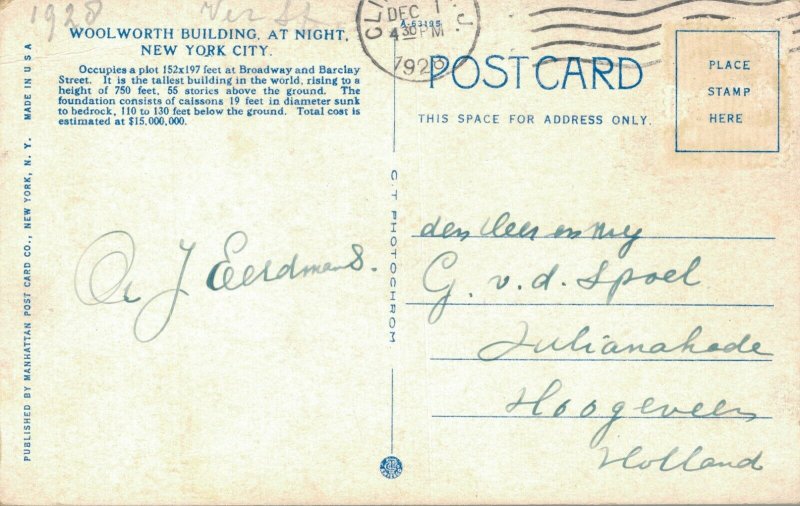 1928 Ver St.
WOOLWORTH BUILDING, AT NIGHT,
NEW YORK CITY.
Occupies a plot 152x197 feet at Broadway and Barclay
Street. It is the tallest building in the world, rising to a
height of 750 feet, 55 stories above the ground. The
foundation consists of caissons 19 feet in diameter sunk
to bedrock, 110 to 130 feet below the ground. Total cost is
estimated at $15,000,000.
PUBLISHED BY MANHATTAN POST CARD CO., NEW YORK, N. Y. MADE IN U S A
J Eerdmans.
C.T. PHOTOCHROM
DEC 1
4 30 PM
1928
A-63195
POST CARD
THIS SPACE FOR ADDRESS ONLY.
PLACE
STAMP
HERE
den Heer en Mej
G. v. d. Spoel
Julianakade
Hoogeveen
Holland